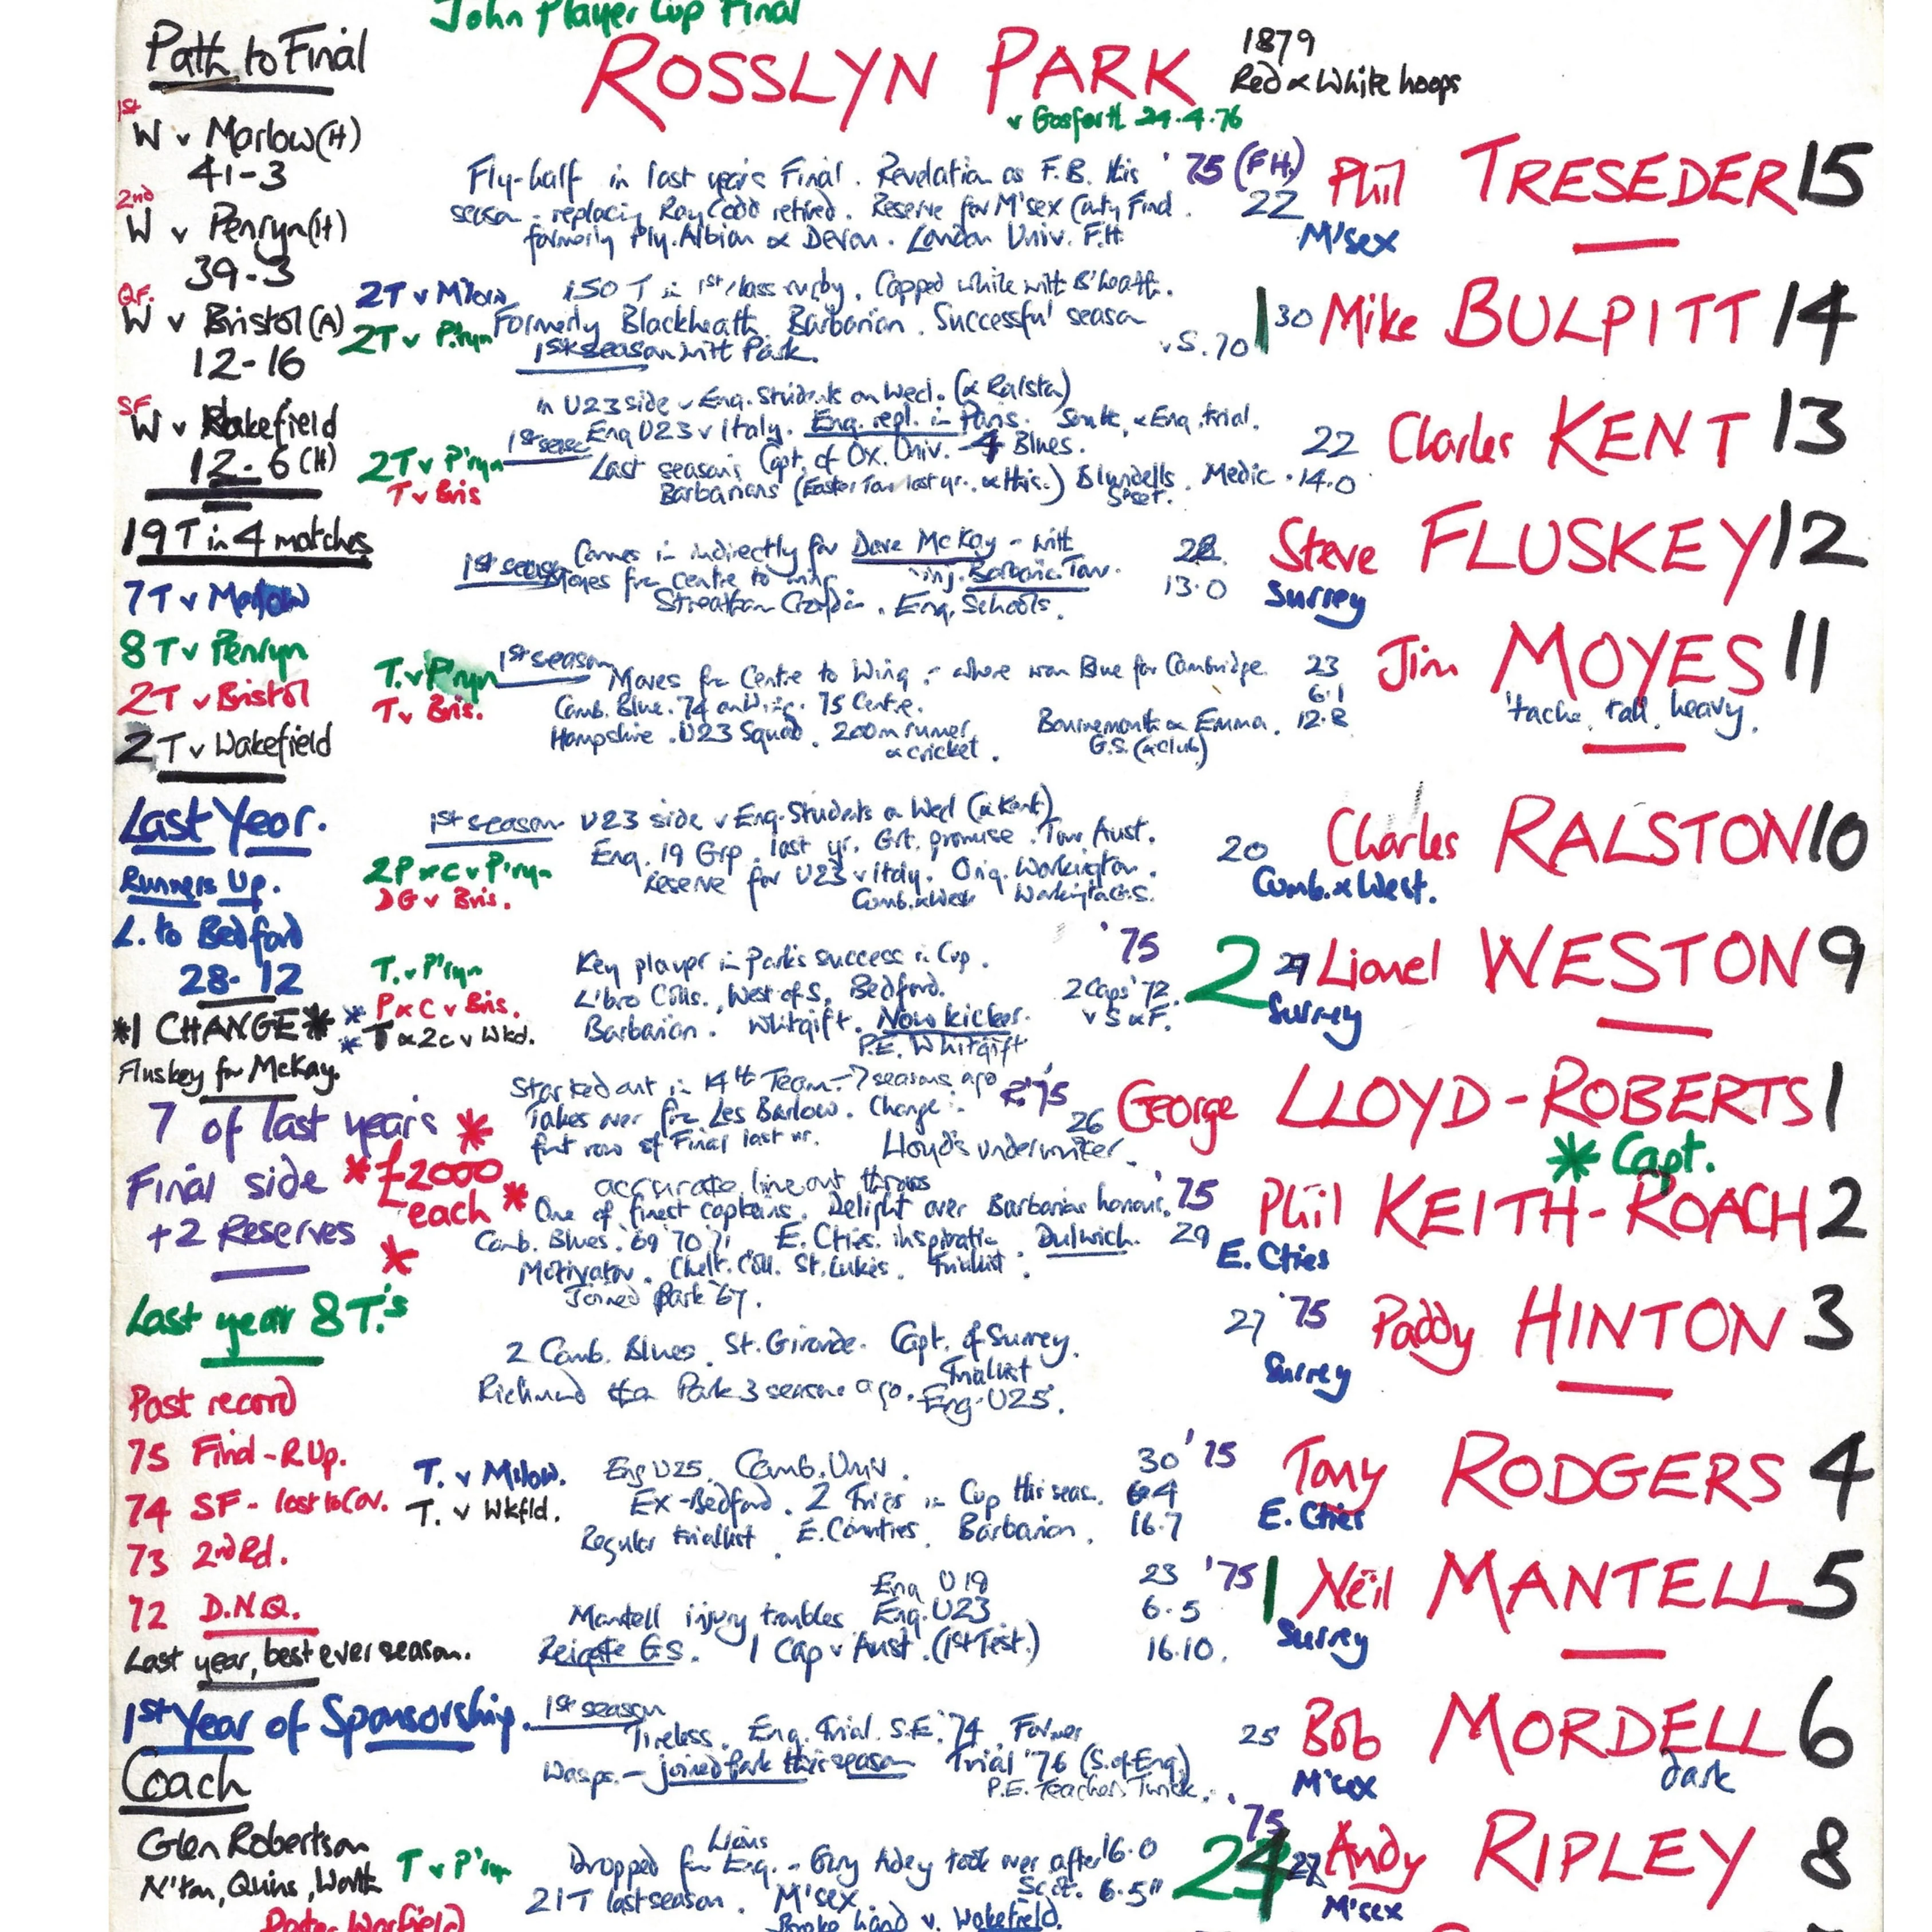 John Player Cup Final
ROSSLYN PARK
1879
Red & White hoops
v Gosforth 24.4.76
Path to Final
1st
W v Marlow (H)
41-3
2nd
W v Penryn (H)
39-3
QF.
W v Bristol (A)
12-16
SF
W v Wakefield
12-6 (H)
19 T in 4 matches
7T v Marlow
8 T v Penryn
2T v Bristol
2 T v Wakefield
Last Year.
Runners Up.
L. to Bedford
28-12
*1 CHANGE*
Fluskey for McKay.
7 of last year's
Final side
+2 Reserves
*£2000
each*
Last year 8 T.'s
Past record
75 Final - R.Up.
74 SF - lost to Cov.
73 2nd Rd.
72 D.N.Q.
Last year, best ever season.
1st Year of Sponsorship.
Coach
Glen Robertson
N'ton, Quins, Worth
Fly-half in last year's Final. Revelation as F.B. this
season - replacing Ray Codd retired. Reserve for M'sex County Final.
formerly Ply. Albion & Devon. London Univ. F.H.
'75 (FH)
22
Phil TRESEDER 15
M'sex
2T v M'low
2T v P'ryn
150 T in 1st class rugby. Capped while with B'heath.
Formerly Blackheath. Barbarian. Successful season
1st season with Park.
v S. 70
1 30 Mike BULPITT 14
In U23 side v Eng. Students on Wed. (& Ralston)
Eng U23 v Italy. Eng. repl. in Paris. South, & Eng. trial.
1st season
Last season's Capt. of Ox. Univ. - 4 Blues.
Barbarians (Easter Tour last yr., & this.) Blundells. Medic.
S'set.
2T v P'ryn
T v Bris
22
14.0
Charles KENT 13
Comes in indirectly for Dave McKay - with
1st season
Moves from centre to wing
inj. Barbarian Tour.
Streatham Croydon. Eng. Schools.
28
13.0
Steve FLUSKEY 12
Surrey
T. v P'ryn
T v Bris.
1st season
Moves from Centre to Wing - where won Blue for Cambridge.
Camb. Blue. 74 on Wing. 75 Centre.
Hampshire. U23 Squad. 200m runner
& cricket.
Bournemouth & Emma.
G.S. (& club)
23
6.1
12.8
Jim MOYES 11
'tache. tall. heavy.
1st season U23 side v Eng. Students on Wed (& Kent)
Eng. 19 Grp. last yr. Grt. promise. Tour Aust.
Reserve for U23 v Italy. Orig. Workington.
Cumb. & West Workington G.S.
2P & C v P'ryn
DG v Bris.
20
Charles RALSTON 10
Cumb. & West.
T. v P'ryn
P & C v Bris.
T & 2c v Wkd.
Key player in Park's success in Cup.
Libro Colls., West of S, Bedford.
Barbarian. Whitgift. Now kicker.
P.E. Whitgift
'75
2 Caps '72
v S & F.
2 Lionel WESTON 9
Surrey
Started out in 14th Team - 7 seasons ago
Takes over from Les Barlow. Change in
front row of Final last yr. Lloyd's underwriter.
R.'75
26
George LLOYD-ROBERTS 1
* Capt.
accurate line out throws
One of finest captains. Delight over Barbarian honour.
Camb. Blues. '69 '70 '71 E. Cties. inspiration Dulwich.
Motivator. Chelt. Coll. St. Lukes. Trialist.
Joined Park '67.
'75
29
Phil KEITH-ROACH 2
E. Cties
2 Camb. Blues. St. Gironde. Capt. of Surrey.
Trialist
Richmond to Park 3 seasons ago. Eng. U25.
27 '75
Paddy HINTON 3
Surrey
T. v M'low.
T. v Wkfld.
Eng U25. Camb. Univ.
Ex-Bedford. 2 Tries in Cup this seas.
Regular triallist. E. Counties. Barbarian.
30 '75
6.4
16.7
Tony RODGERS 4
E. Cties
Eng U19
Mantell injury troubles Eng. U23
Reigate G.S. 1 Cap v Aust. (1st Test.)
23 '75
6.5
16.10.
1 Neil MANTELL 5
Surrey
1st season
Tireless. Eng. Trial. S.E. '74. Former
Wasps. - joined Park this season Trial '76 (S. of Eng)
P.E. Teacher, Twick.
25
Bob MORDELL 6
M'sex
dark
T v P'ryn
Lions
Dropped for Eng. - Gary Adey took over after
Scot.
21T last season. M'sex
Broke hand v. Wakefield.
'75
16.0
6.5"
24 Andy RIPLEY 8
M'sex